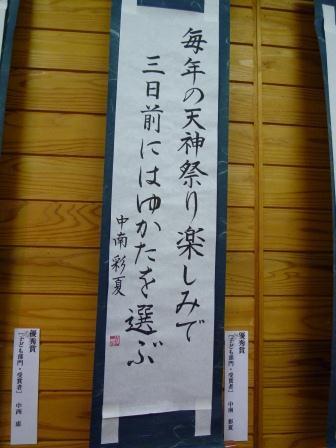 毎年の天神祭り楽しみで
三日前にはゆかたを選ぶ
中南 彩夏
優秀賞
［子ども部門・受賞者］
中南 彩夏
優秀賞
［子ども部門・受賞者］